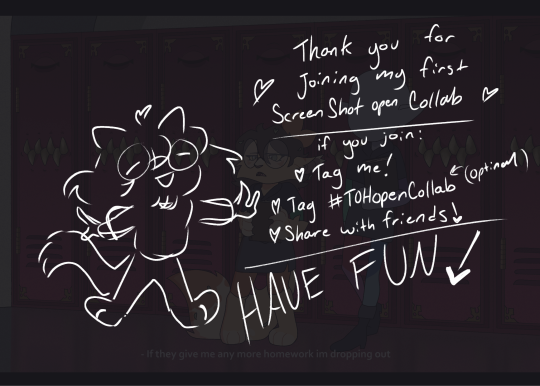 Thank you for
Joining my first
ScreenShot open Collab
if you join:
Tag me!
Tag #TOHopenCollab (optional)
Share with friends!
HAVE FUN
- If they give me any more homework im dropping out